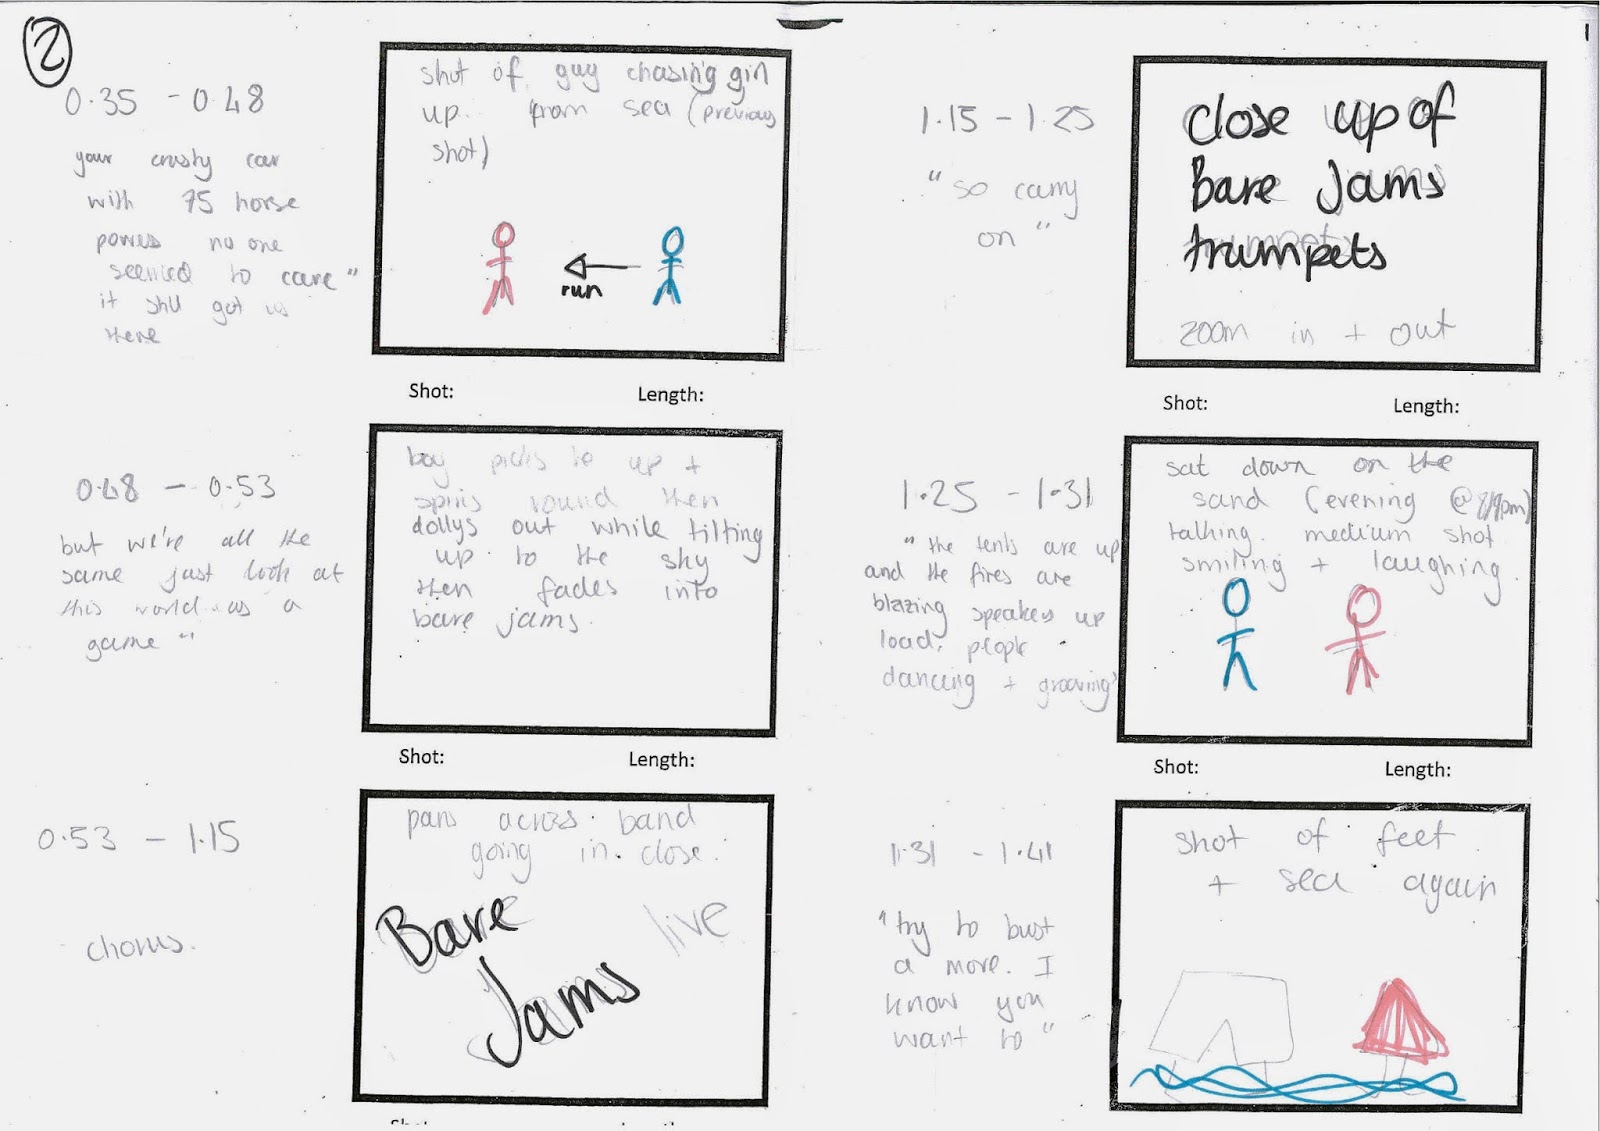 2
0.35 - 0.48
your crusty car
with 75 horse
power no one
seemed to care"
it still got us
there
shot of guy chasing girl
up from sea (previous
shot)
run
Shot: Length:
0.48 - 0.53
but we're all the
same just look at
this world as a
game"
boy picks up +
spins round then
dollys out while tilting
up to the sky
then fades into
bare jams.
Shot: Length:
0.53 - 1.15
chorus.
pans across band
going in close.
Bare
Jams
live
1
1.15 - 1.25
"so carry
on"
close up of
Bare Jams
trumpets
zoom in + out
Shot: Length:
1.25 - 1.31
"the tents are up
and the fires are
blazing speakers up
load, people
dancing + grooving"
sat down on the
sand (evening @ 8/9pm)
talking. medium shot
smiling + laughing.
Shot: Length:
1.31 - 1.41
"try to bust
a move. I
know you
want to"
shot of feet
+ sea again